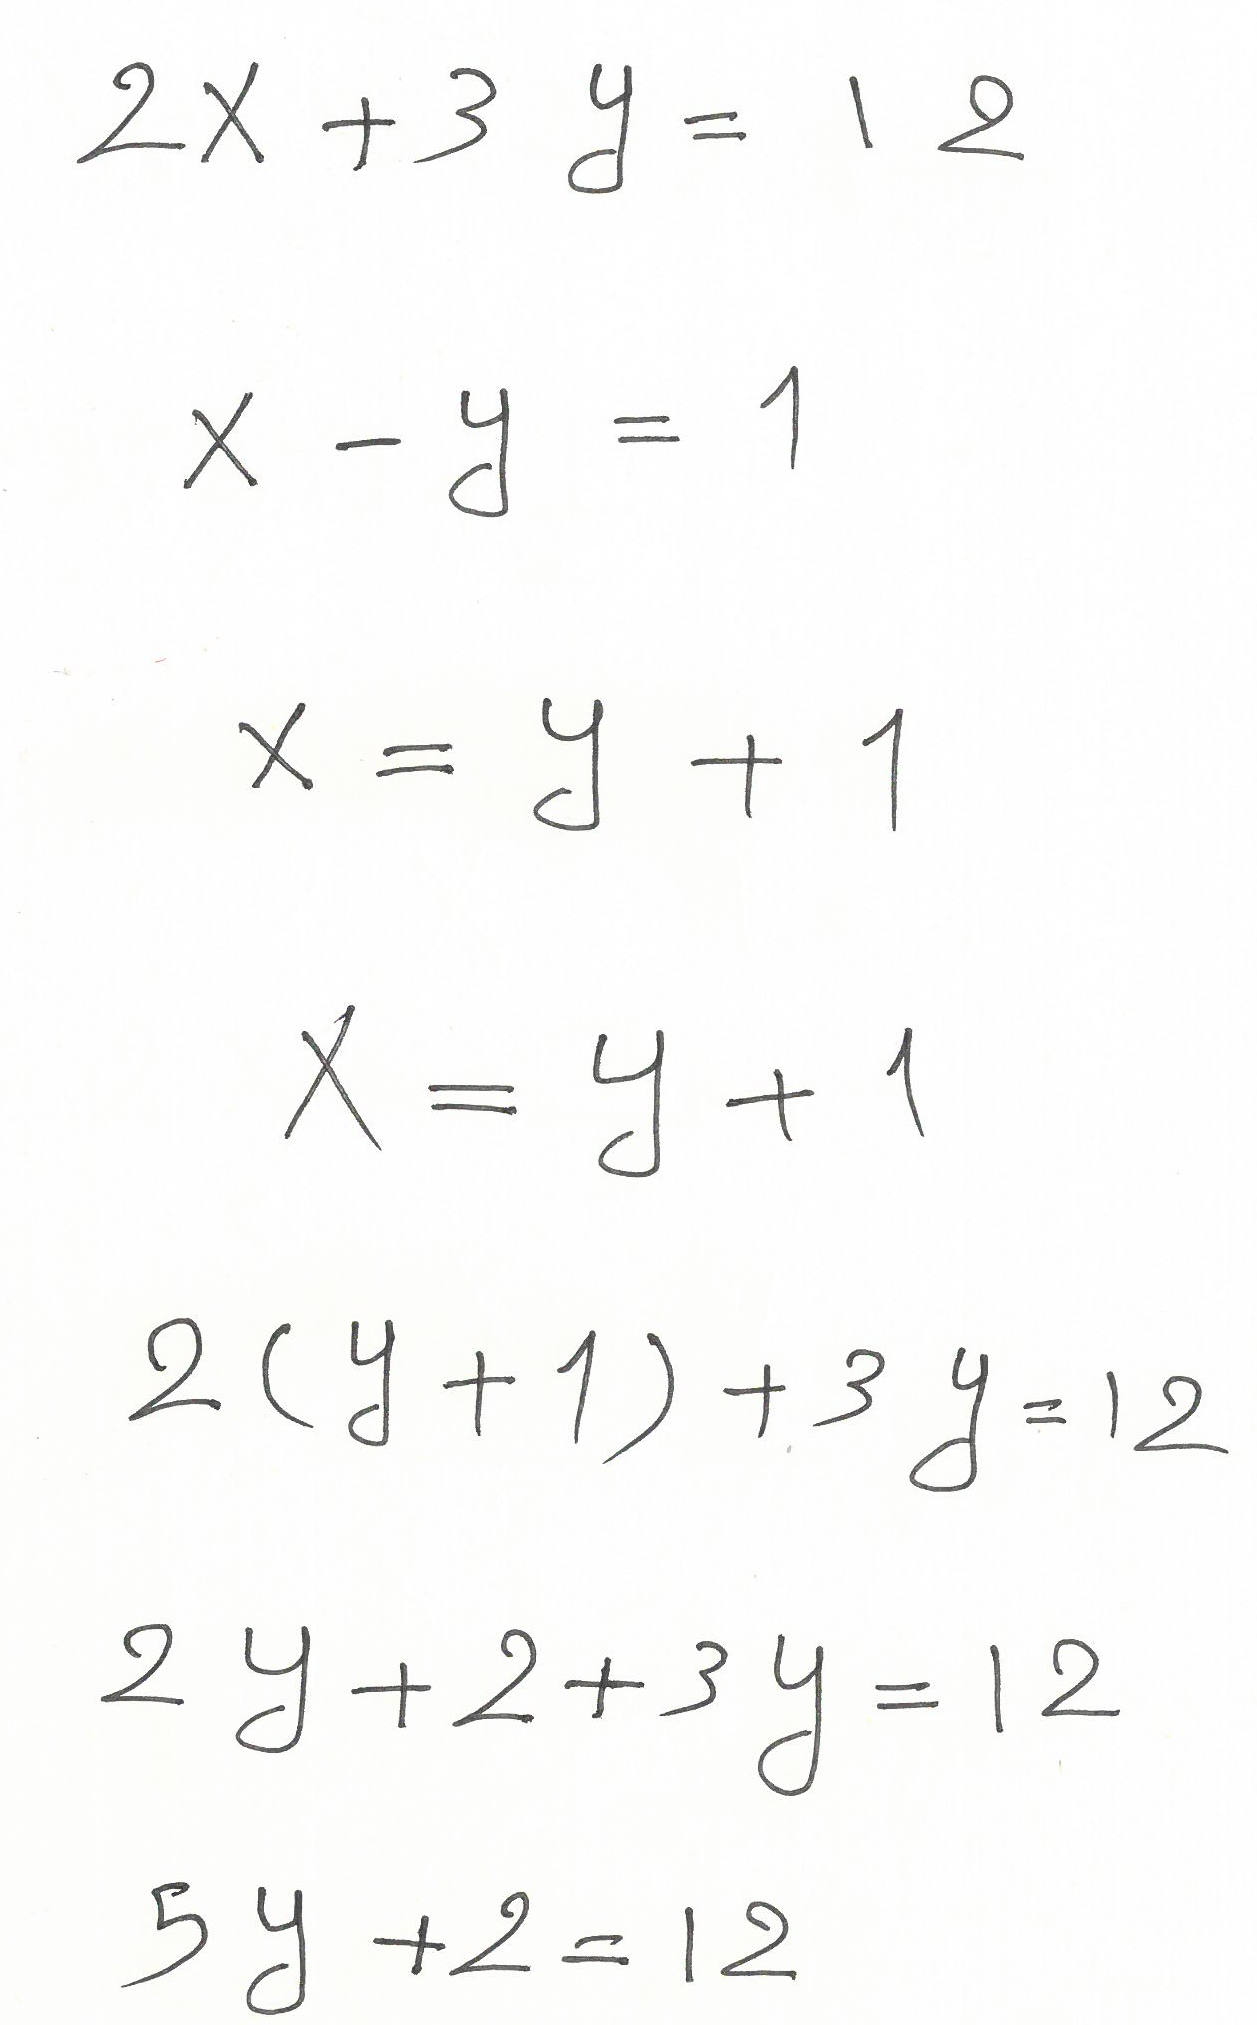 2x + 3y = 12
x - y = 1
x = y + 1
x = y + 1
2(y + 1) + 3y = 12
2y + 2 + 3y = 12
5y + 2 = 12